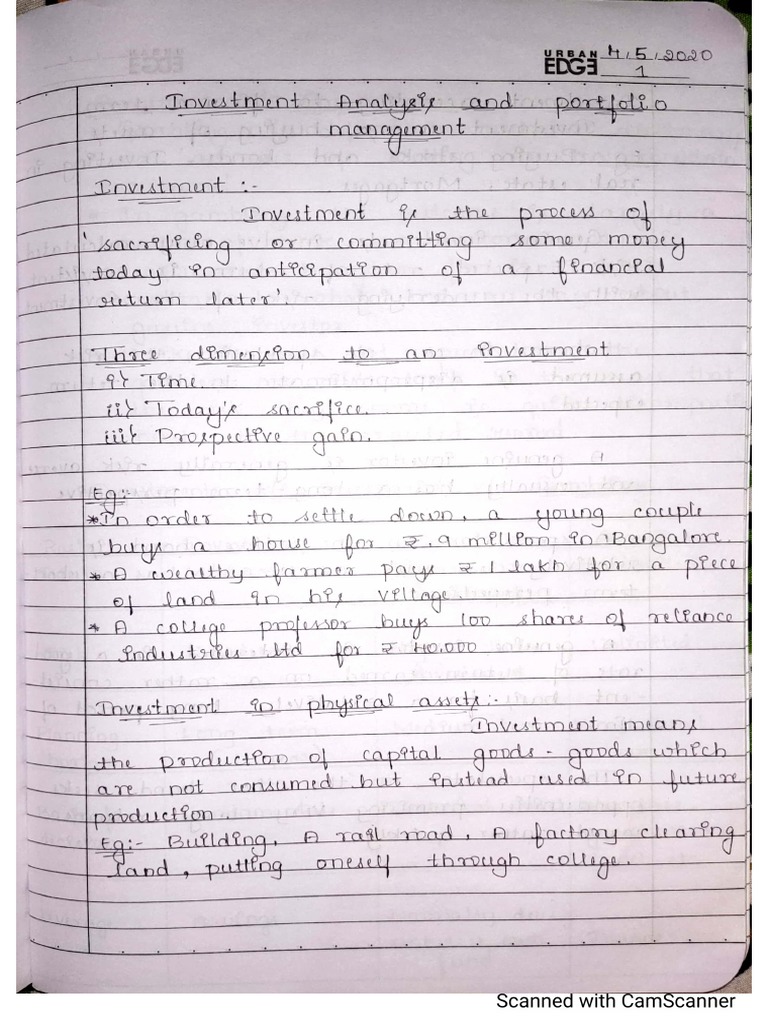 URBAN EDGE 4/5/2020
1
Investment Analysis and portfolio
management
Investment :-
Investment is the process of
'sacrificing or committing some money
today in anticipation of a financial
return later'.
Three dimension to an investment
i} Time
ii} Today's sacrifice.
iii} Prospective gain.
Eg:-
*In order to settle down, a young couple
buys a house for ₹.9 million in Bangalore.
* A wealthy farmer pays ₹1 lakh for a piece
of land in his village.
* A college professor buys 100 shares of reliance
industries ltd for ₹ 40,000
Investment in physical assets:-
Investment means
the production of capital goods - goods which
are not consumed but instead used in future
production
Eg:- Building, A rail road, A factory clearing
land, putting oneself through college.
Scanned with CamScanner